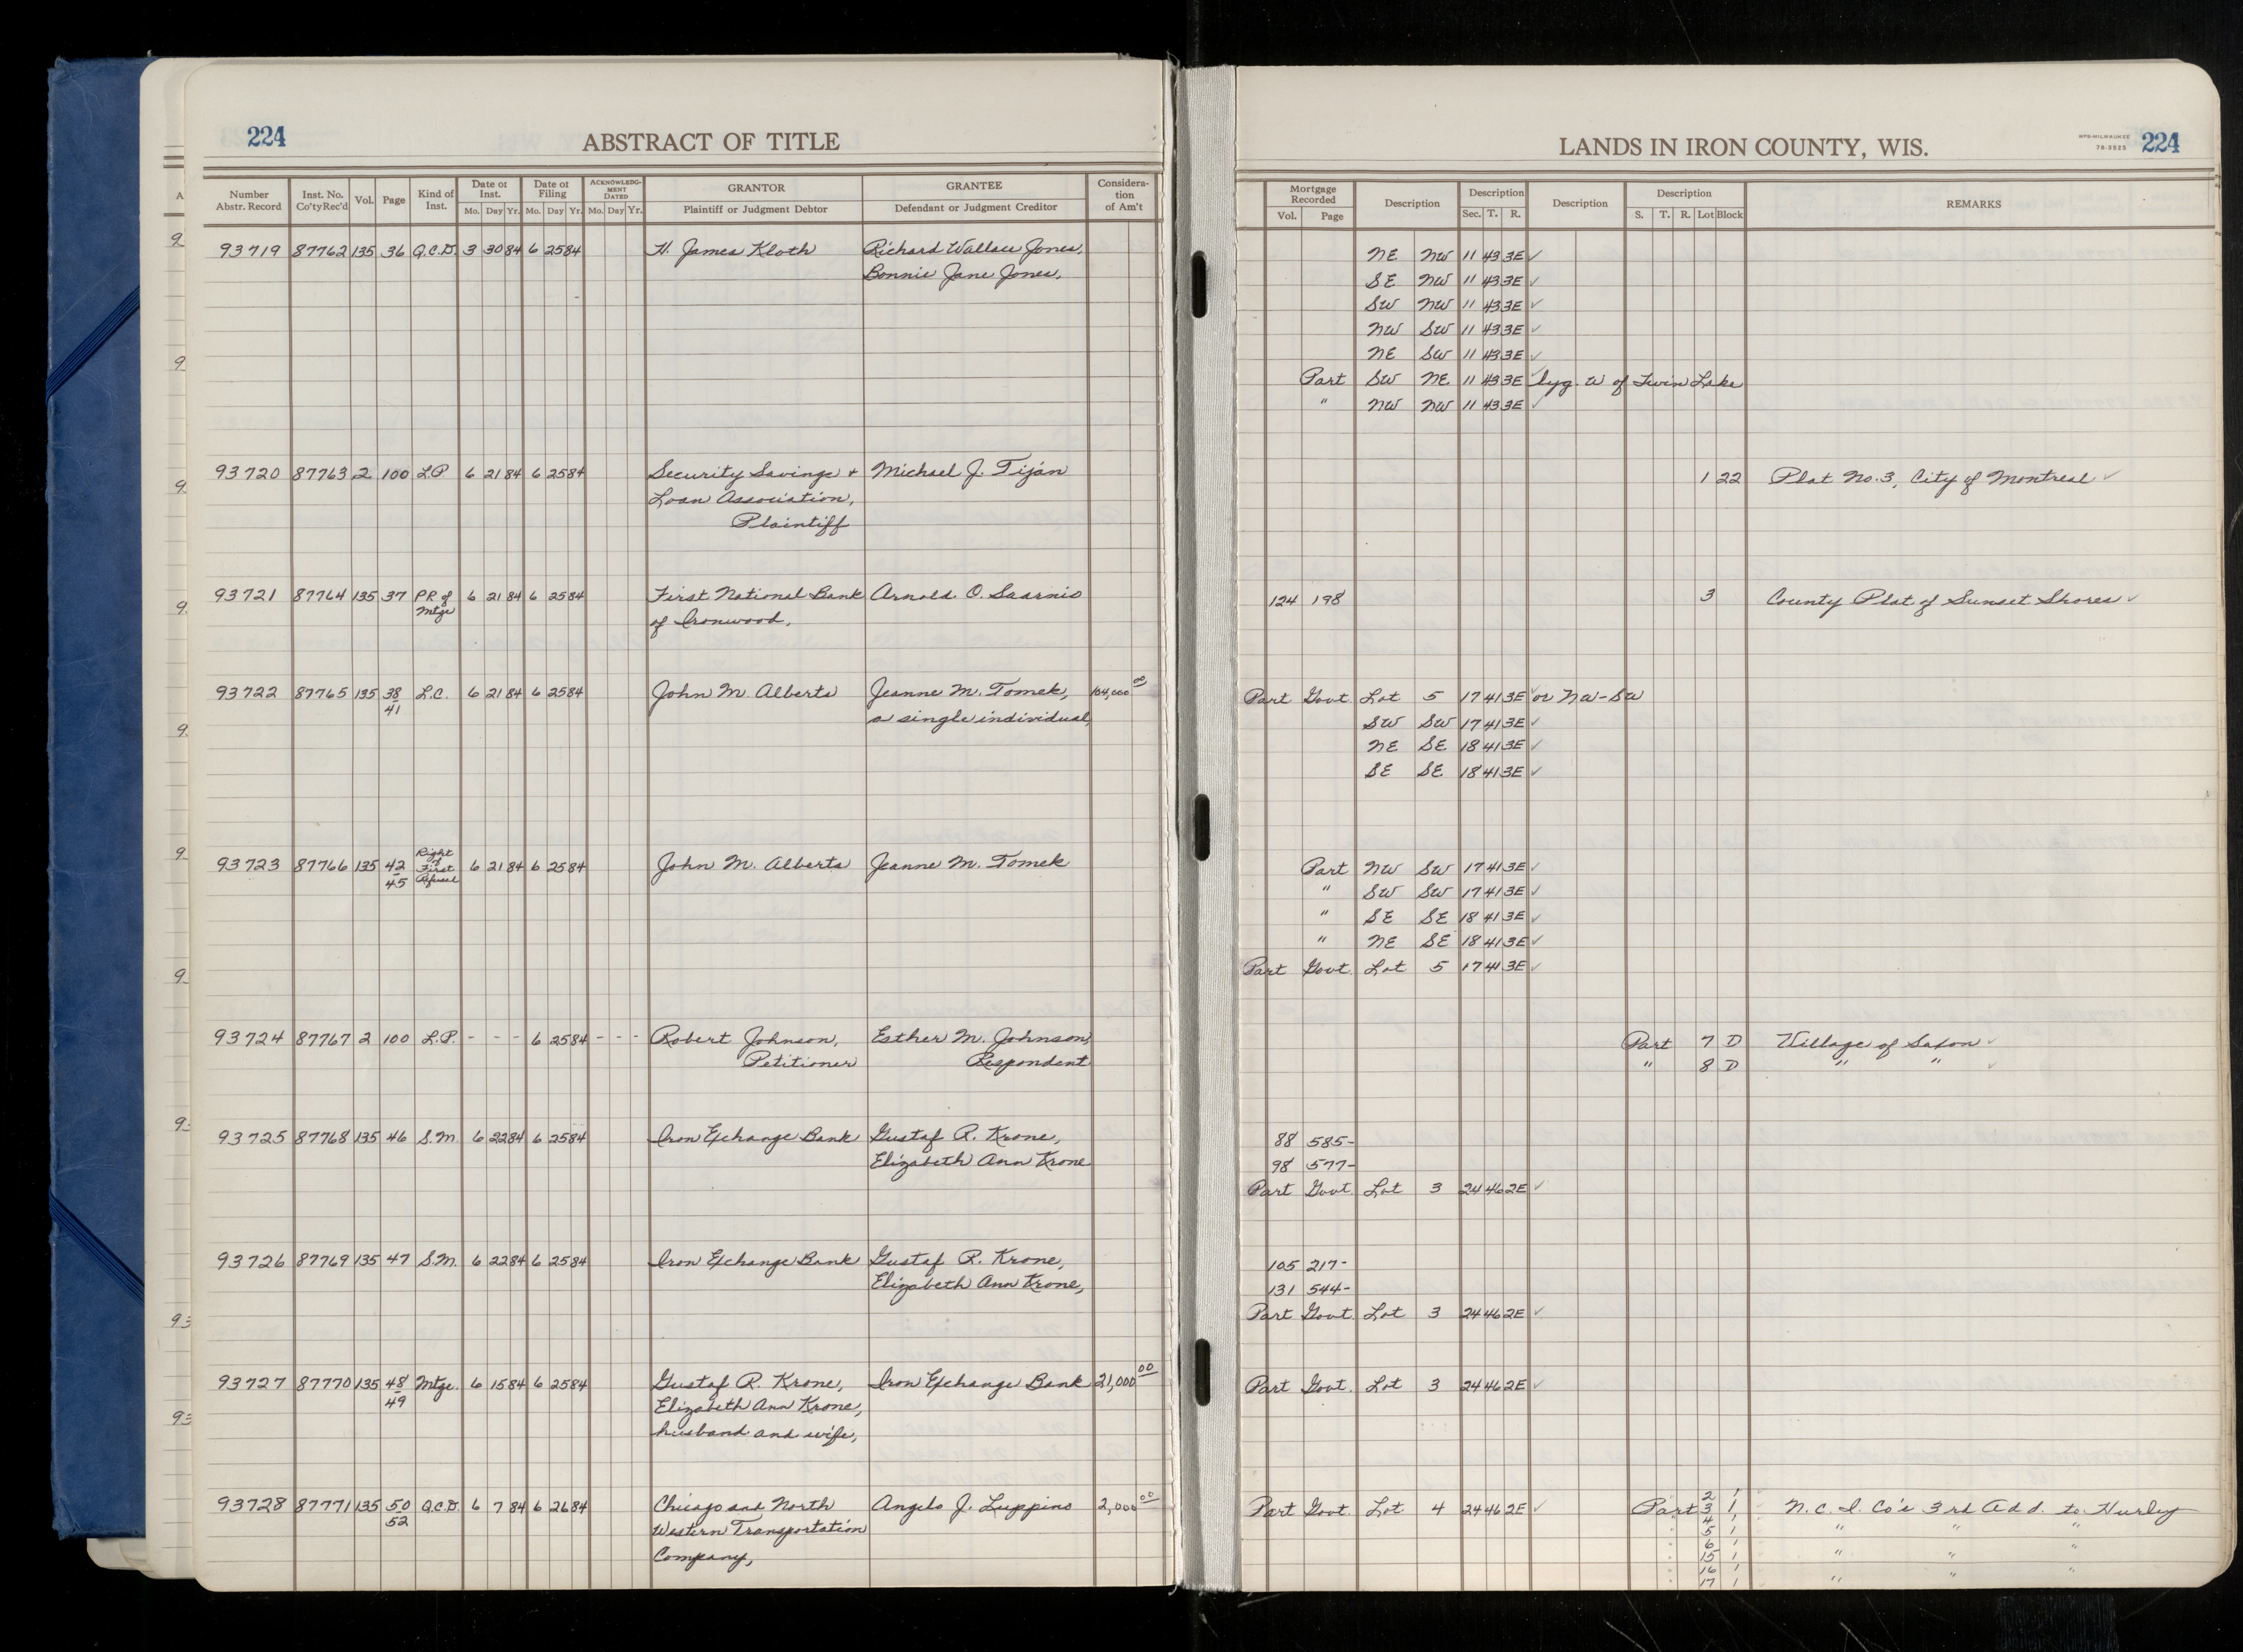 224 ABSTRACT OF TITLE
Number Abstr. Record Inst. No. Co'ty Rec'd Vol. Page Kind of Inst. Date of Inst. Mo. Day Yr. Date of Filing Mo. Day Yr. ACKNOWLEDGMENT DATED Mo. Day Yr. GRANTOR Plaintiff or Judgment Debtor GRANTEE Defendant or Judgment Creditor Consideration of Am't
93719 87762 135 36 Q.C.D. 3 30 84 6 25 84 H. James Kloth Richard Wallace Jones,
Bonnie Jane Jones,
93720 87763 2 100 L.P 6 21 84 6 25 84 Security Savings + Michael J. Tijan
Loan Association,
Plaintiff
93721 87764 135 37 P.R. of Mtge 6 21 84 6 25 84 First National Bank Arnold O. Saarnio
of Ironwood,
93722 87765 135 38-41 L.C. 6 21 84 6 25 84 John M. Alberts Jeanne M. Tomek, 104,000 00
a single individual,
93723 87766 135 42-45 Right of First Refusal 6 21 84 6 25 84 John M. Alberts Jeanne M. Tomek
93724 87767 2 100 L.P. - - - 6 25 84 - - - Robert Johnson, Esther M. Johnson,
Petitioner Respondent
93725 87768 135 46 S.M. 6 22 84 6 25 84 Iron Exchange Bank Gustaf R. Krone,
Elizabeth Ann Krone
93726 87769 135 47 S.M. 6 22 84 6 25 84 Iron Exchange Bank Gustaf R. Krone,
Elizabeth Ann Krone,
93727 87770 135 48-49 Mtge. 6 15 84 6 25 84 Gustaf R. Krone, Iron Exchange Bank 21,000 00
Elizabeth Ann Krone,
husband and wife,
93728 87771 135 50-52 Q.C.D. 6 7 84 6 26 84 Chicago and North Angelo J. Luppino 2,000 00
Western Transportation
Company,
LANDS IN IRON COUNTY, WIS. WPS-MILWAUKEE 224
Mortgage Recorded Vol. Page Description Description Sec. T. R. Description Description S. T. R. Lot Block REMARKS
NE NW 11 43 3E ✓
SE NW 11 43 3E ✓
SW NW 11 43 3E ✓
NW SW 11 43 3E ✓
NE SW 11 43 3E ✓
Part SW NE 11 43 3E ✓ lyg. W of Twin Lake
" NW NW 11 43 3E ✓
1 22 Plat No. 3, City of Montreal ✓
124 198 3 County Plat of Sunset Shores ✓
Part Govt. Lot 5 17 41 3E ✓ or NW-SW
SW SW 17 41 3E ✓
NE SE 18 41 3E ✓
SE SE 18 41 3E ✓
Part NW SW 17 41 3E ✓
" SW SW 17 41 3E ✓
" SE SE 18 41 3E ✓
" NE SE 18 41 3E ✓
Part Govt. Lot 5 17 41 3E ✓
Part 7 D Village of Saxon ✓
" 8 D " " ✓
88 585-
98 577-
Part Govt. Lot 3 24 46 2E ✓
105 217-
131 544-
Part Govt. Lot 3 24 46 2E ✓
Part Govt. Lot 3 24 46 2E ✓
2 1
Part Govt. Lot 4 24 46 2E ✓ Part 3 1 N.C.I. Co's 3rd Add. to Hurley
4 1
5 1 " " "
6 1
15 1 " " "
16 1
17 1 " " "